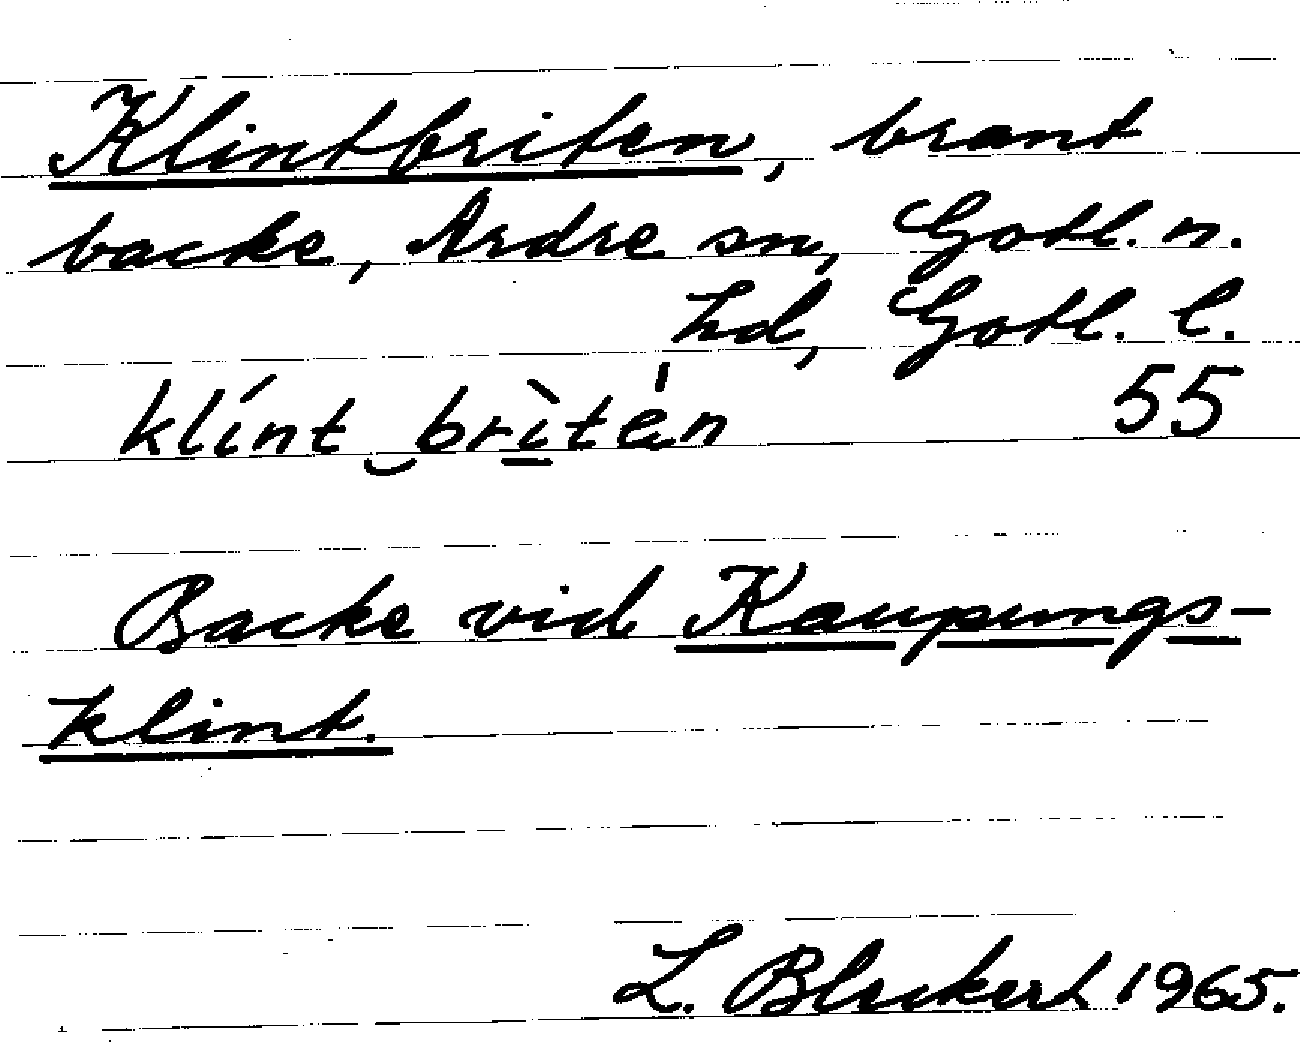 Klintbriten, brant
backe, Ardre sn, Gotl. n.
hd, Gotl. l.
klint briten 55
Backe vid Kaupungs-
klint.
L. 1965.